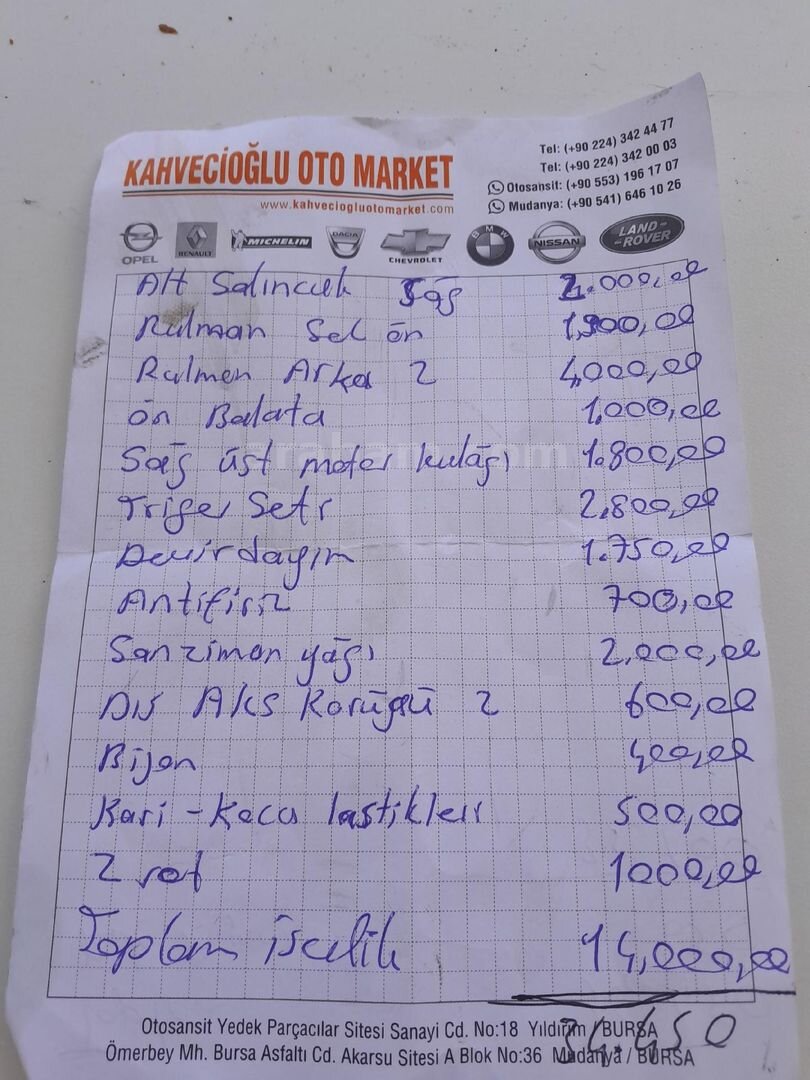 KAHVECİOĞLU OTO MARKET
www.kahveciogluotomarket.com
Tel: (+90 224) 342 44 77
Tel: (+90 224) 342 00 03
Otosansit: (+90 553) 196 17 07
Mudanya: (+90 541) 646 10 26
OPEL RENAULT MICHELIN DACIA CHEVROLET BMW NISSAN LAND-ROVER
Alt Salıncak Sağ 2.000,00
Rulman Sol ön 1,900,00
Rulman Arka 2 4,000,00
ön Balata 1,000,00
Sağ üst motor kulağı 1.800,00
Triger Seti 2,800,00
Devirdayım 1.750,00
Antifiriz 700,00
Sanzıman yağı 2.000,00
Dış Aks Körüğü 2 600,00
Bijon 400,00
Karı-Koca lastikleri 500,00
2 rot 1000,00
Toplam iscilik 14,000,00
34.450
Otosansit Yedek Parçacılar Sitesi Sanayi Cd. No:18 Yıldırım / BURSA
Ömerbey Mh. Bursa Asfaltı Cd. Akarsu Sitesi A Blok No:36 Mudanya / BURSA